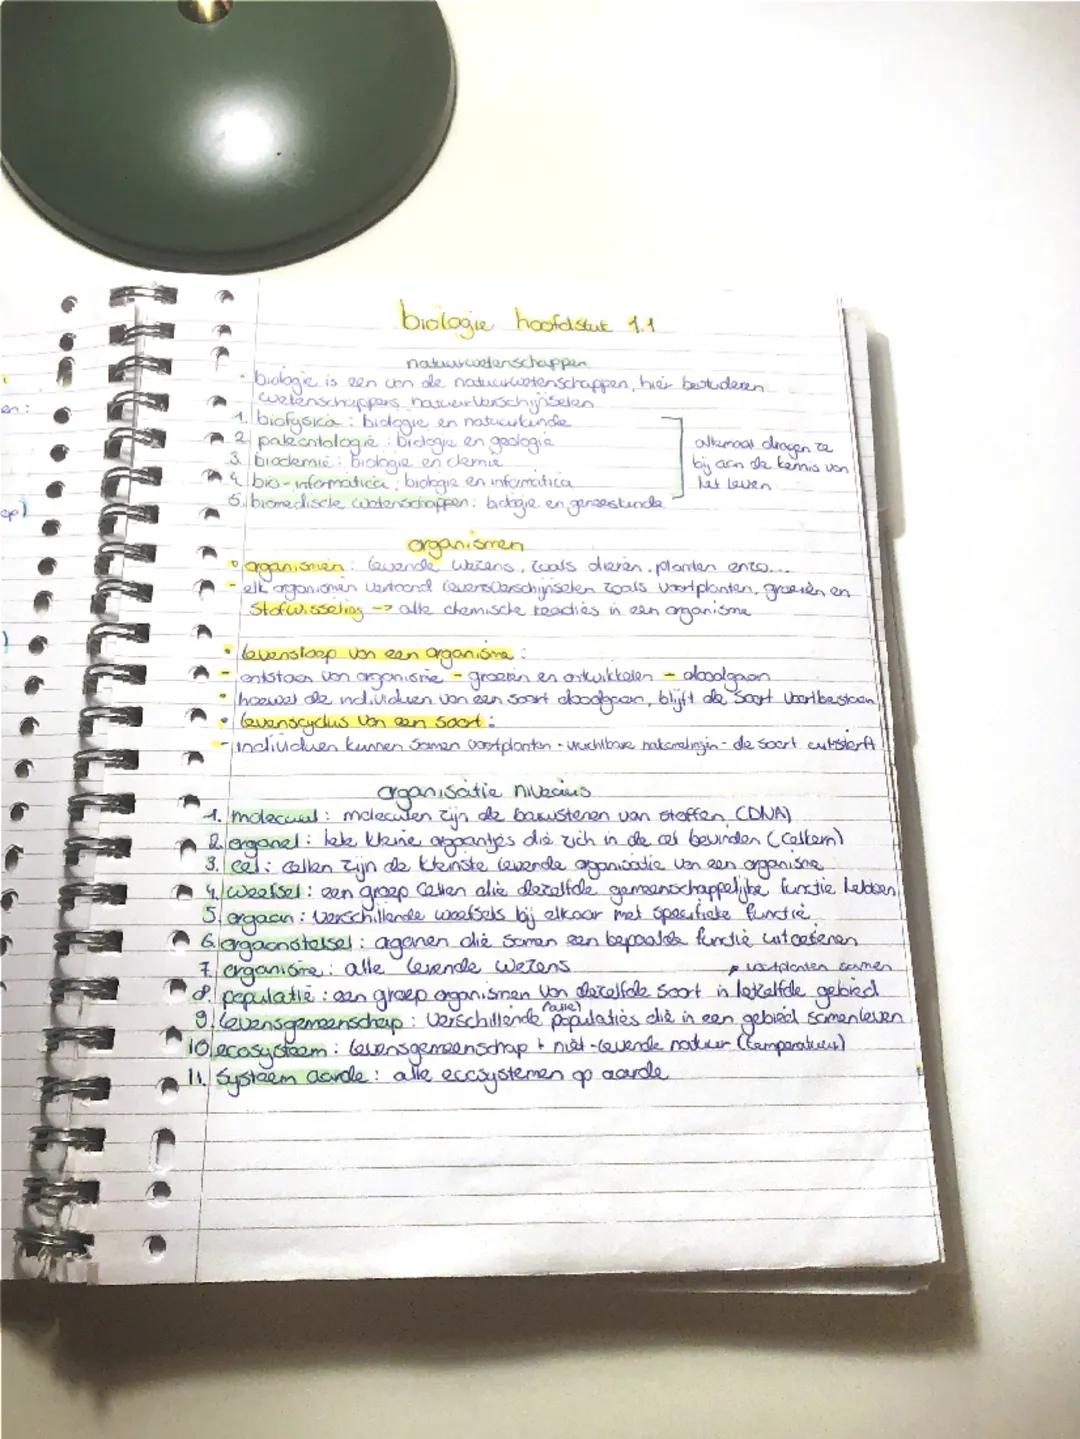 biologie hoofdstuk 1.1
natuurwetenschappen
• biologie is een van de natuurwetenschappen, hier bestuderen
wetenschappers natuurverschijnselen
1. biofysica: biologie en natuurkunde
2. paleontologie: biologie en geologie
3. biochemie: biologie en chemie
4. bio-informatica: biologie en informatica
5. biomedische wetenschappen: biologie en geneeskunde
allemaal dragen ze
bij aan de kennis van
het leven
organismen
• organismen: levende wezens, zoals dieren, planten enzo...
- elk organismen vertoond levensverschijnselen zoals voortplanten, groeien en
stofwisseling -> alle chemische reacties in een organisme
• levensloop van een organisme:
- ontstaan van organisme - groeien en ontwikkelen - doodgaan
• hoewel de individuen van een soort doodgaan, blijft de soort voortbestaan
• levenscyclus van een soort:
- individuen kunnen samen voortplanten - vruchtbare nakomelingen - de soort uitsterft
organisatie niveaus
1. molecuul: moleculen zijn de bouwstenen van stoffen (DNA)
2. organel: hele kleine orgaantjes die zich in de cel bevinden (celkern)
3. cel: cellen zijn de kleinste levende organisatie van een organisme
4. weefsel: een groep cellen die dezelfde gemeenschappelijke functie hebben
5. orgaan: verschillende weefsels bij elkaar met specifieke functie
6. orgaanstelsel: organen die samen een bepaalde functie uitoefenen
7. organisme: alle levende wezens
voortplanten samen
8. populatie: een groep organismen van dezelfde soort in hetzelfde gebied
(alle)
9. levensgemeenschap: verschillende populaties die in een gebied samenleven
10. ecosysteem: levensgemeenschap + niet-levende natuur (temperatuur)
11. Systeem aarde: alle ecosystemen op aarde
en: